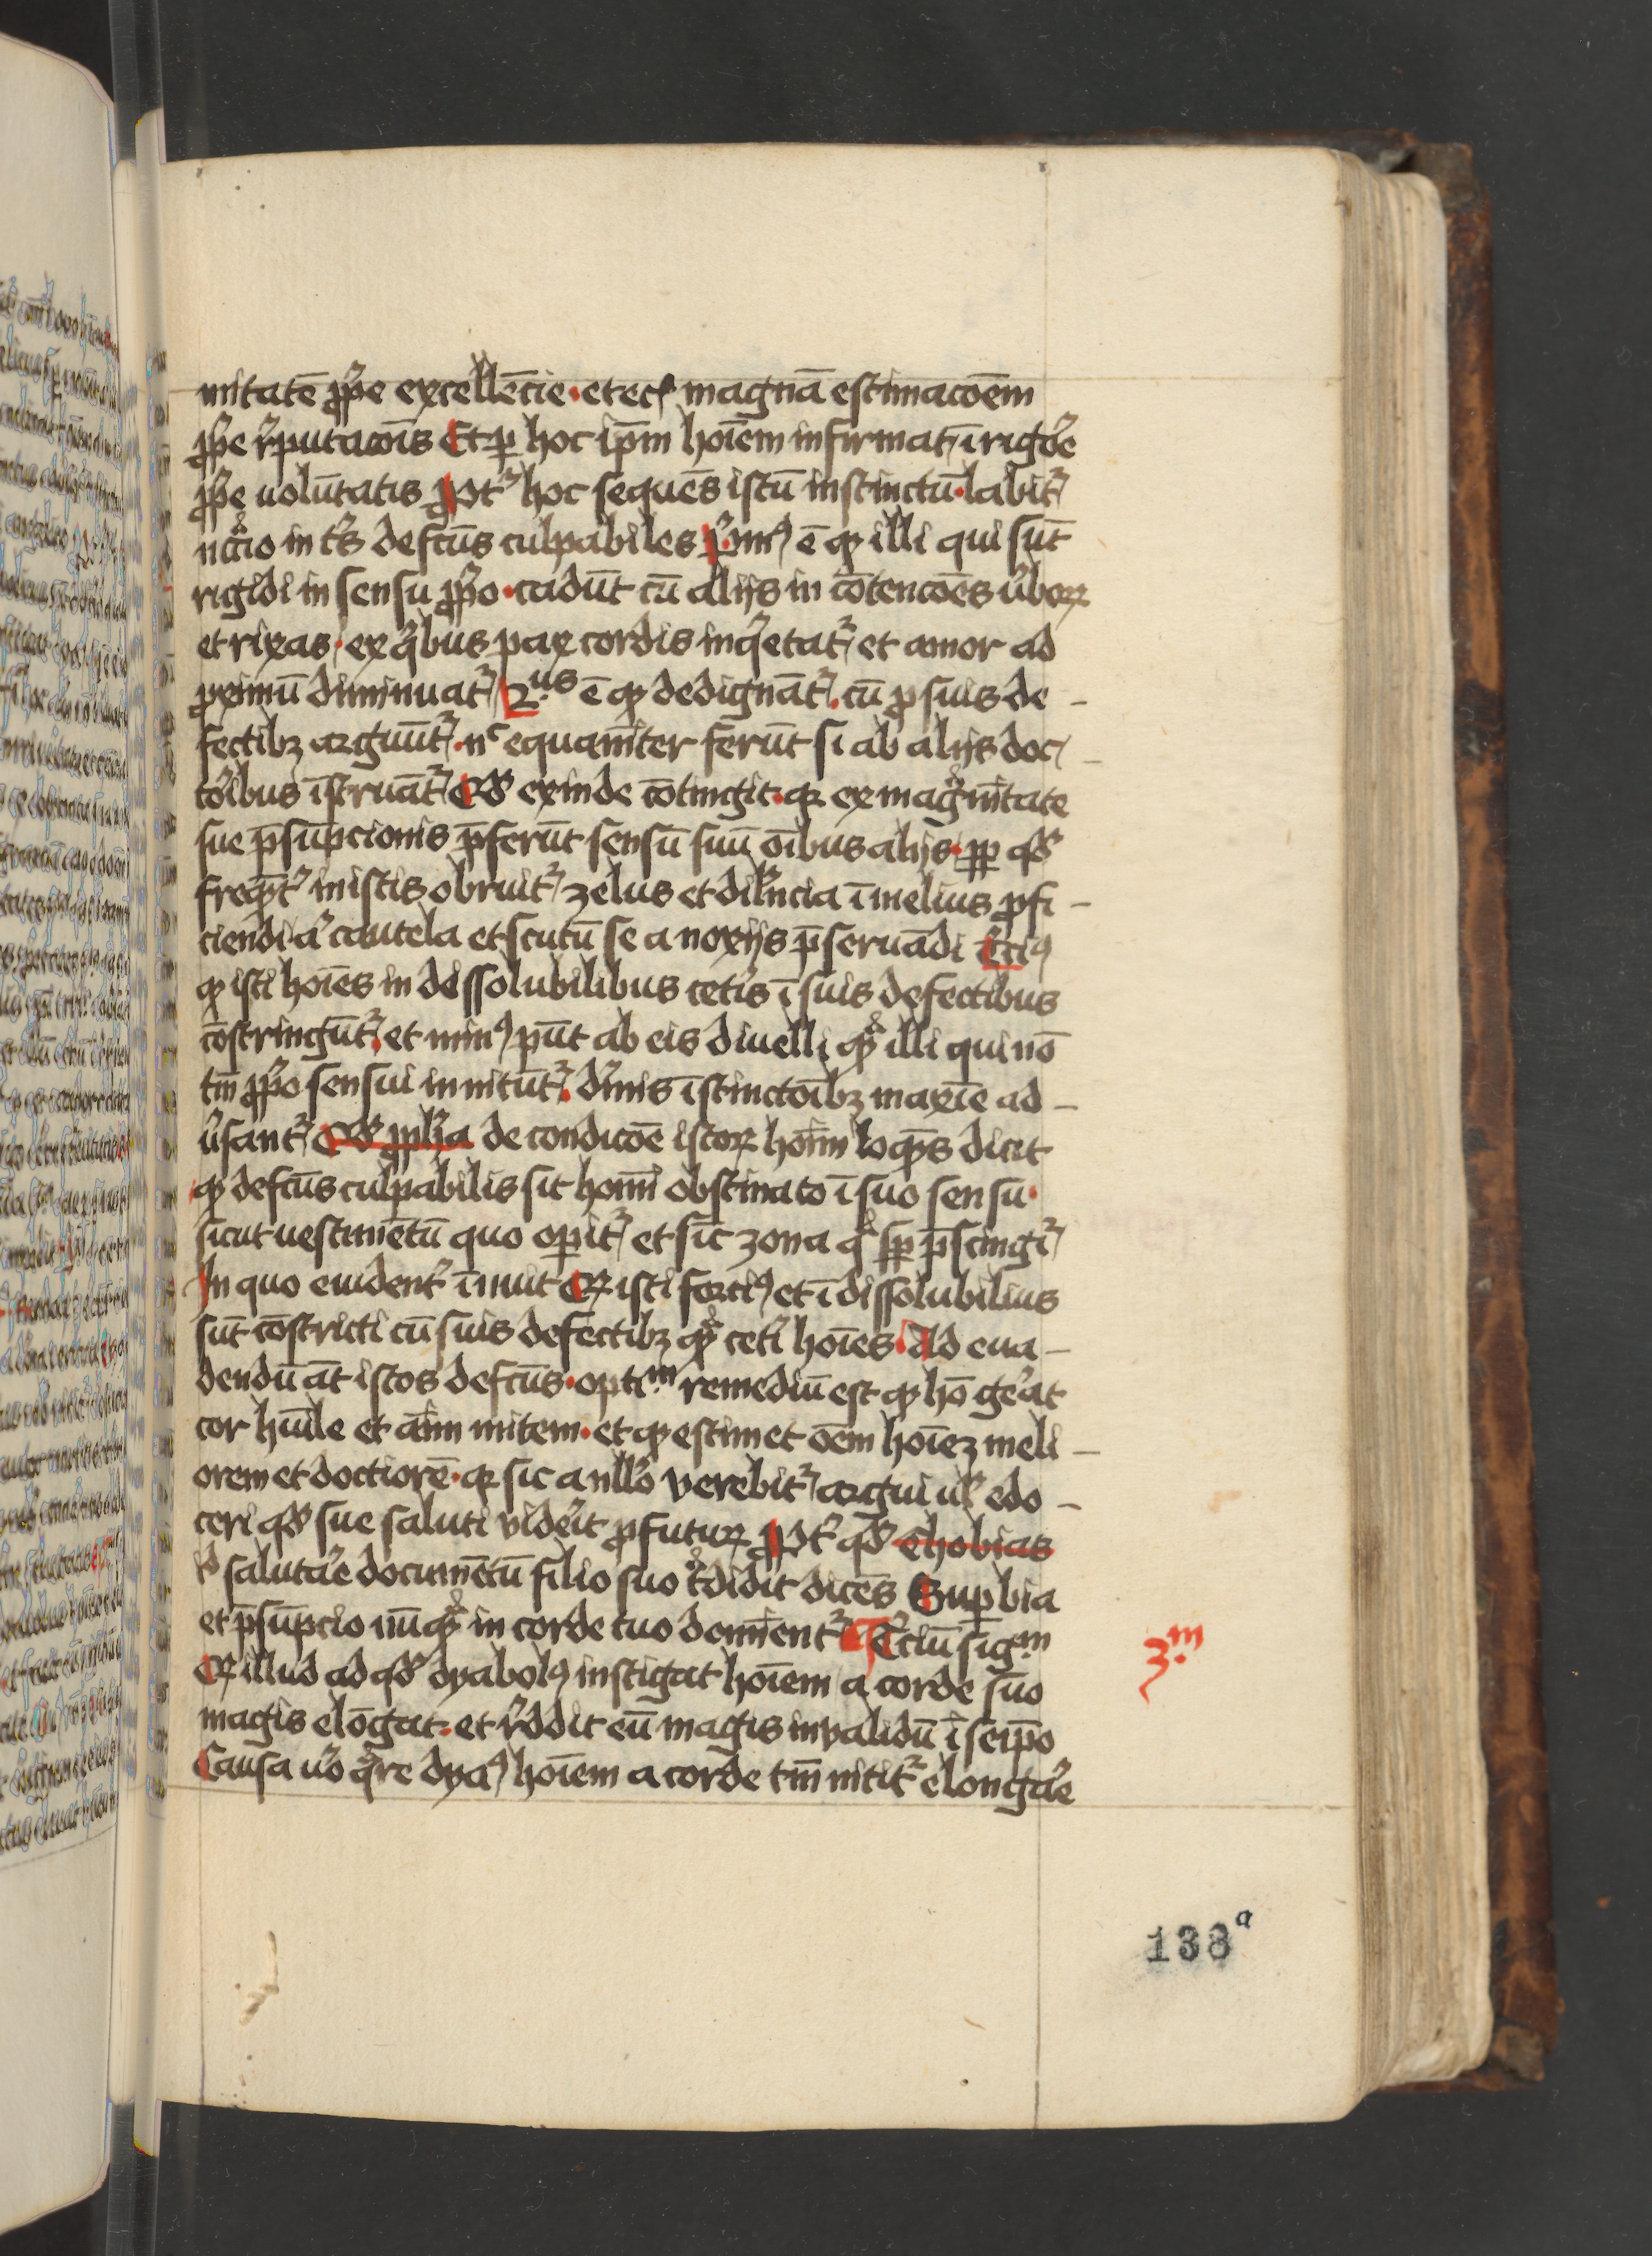 mitatē ꝓp̄e excellēcie · et ec̄ magnā estimacōem
ꝓp̄e r̄putacōis Et ꝑ hoc ip̄m hoīem infirmat ī rigōe
ꝓp̄e uolūtatis Ꝓpt̄ hoc sequēs istū instinctū · labit̄
in t̄s defc̄us culpabiles p̄mꝰ ē ꝙ illi qui sūt
rigidi in sensu ꝓp̄o · cadūt cū alijs in cōtencōes u̇boꝝ
et rixas · ex q̇bus pax cordis inq̇etat̄ et amor ad
ꝓximū diminuat̄ 2us ē ꝙ dedignāt̄ · cū ꝓ suis de-
fectibꝫ arguūt̄ · nc equanīter ferūt si ab alijs doc-
tōibus īstruāt̄ Qd̄ exinde cōtingit · qꝛ ex magnītate
sue p̄sūpcionis p̄ferūt sensū suū oībus alijs · ꝓp̄ qd̄
freqt̄ in istis obruit̄ zelus et dilīncia ī melius ꝓfi-
ciendi a̅ cautela et scutū se a noxijs p̄seruādi t̄ciꝰ
ꝙ isti hoīes in dessolubilibus cet̄is ī suis defectibus
cōstringūt̄ et minꝰ pn̄t ab eis diuelli qͣ illi qui nō
tm̄ ꝓp̄o sensui innitūt̄ · dīnis īstinctōibꝫ maxīe ad-
u̇sant̄ de condicōe istoꝝ hoīm loqn̄s dicit
ꝙ defc̄us culpabilis sit homī obstinato ī suo sensu ·
sicut uestimētū quo opit̄ et sic̄ zona qͣ sp̄ p̄scingi̅
In quo euident̄ īnuit Qꝛ isti forciꝰ et ī dissolubilius
sūt cōstricti cū suis defectibꝫ qͣ cet̄i hoīes · Ad eua-
dendū āt istos defc̄us · optim remediū est ꝙ hō ge̅at
cor hūile et aīm mitem · et ꝙ estimet oēm hoīeꝫ meli-
orem et doctiorē · qꝛ sic a nll̄o verebit̄ argui ul̄ edo-
ceri qd̄ sue saluti vide̅it ꝓfutuꝝ Ꝓpt̄ qd̄ Thobias
salutā̅e documētū filio suo tͣdidit dicēs Suꝑbia
et p̄sūpcio nūqͣ in corde tuo domīent̄ T̄ciū sigm
Qꝛ illud ad qd̄ dyabolꝰ instigat hoīem a corde suo
magis elōgat · et r̄ddit eū magis inualidū ī seip̄o
Causa u̅o qͣre dyaꝰ hoīem a corde tm̄ nitit̄ elonga̅e
3m
138a